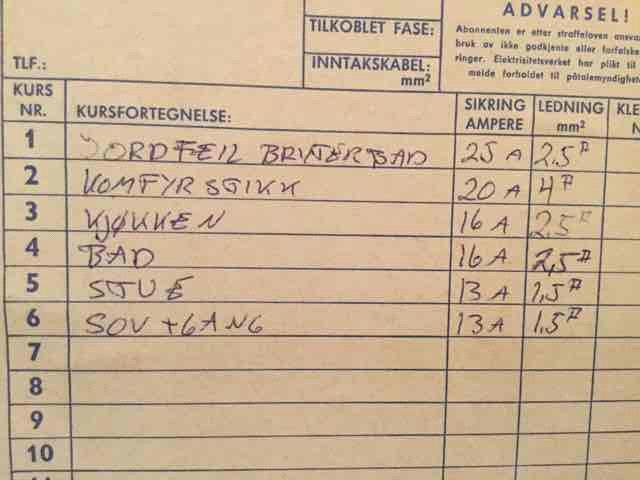 ADVARSEL!
TILKOBLET FASE:
Abonnenten er etter straffeloven ansva
bruk av ikke godkjente eller forfalske
ringer. Elektrisitetsverket har plikt til
melde forholdet til påtalemyndighete
TLF.:
INNTAKSKABEL:
mm²
KURS NR. KURSFORTEGNELSE: SIKRING AMPERE LEDNING mm² KLE
1 JORDFEIL BRYTER BAD 25 A 2.5
2 KOMFYR STIKK 20 A 4
3 KJØKKEN 16 A 2.5
4 BAD 16 A 2,5
5 STUE 13 A 1,5
6 SOV + GANG 13 A 1.5
7
8
9
10